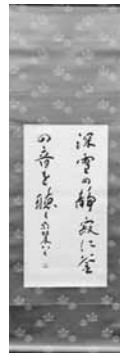 深雪の静寂に釜
の音を聴く